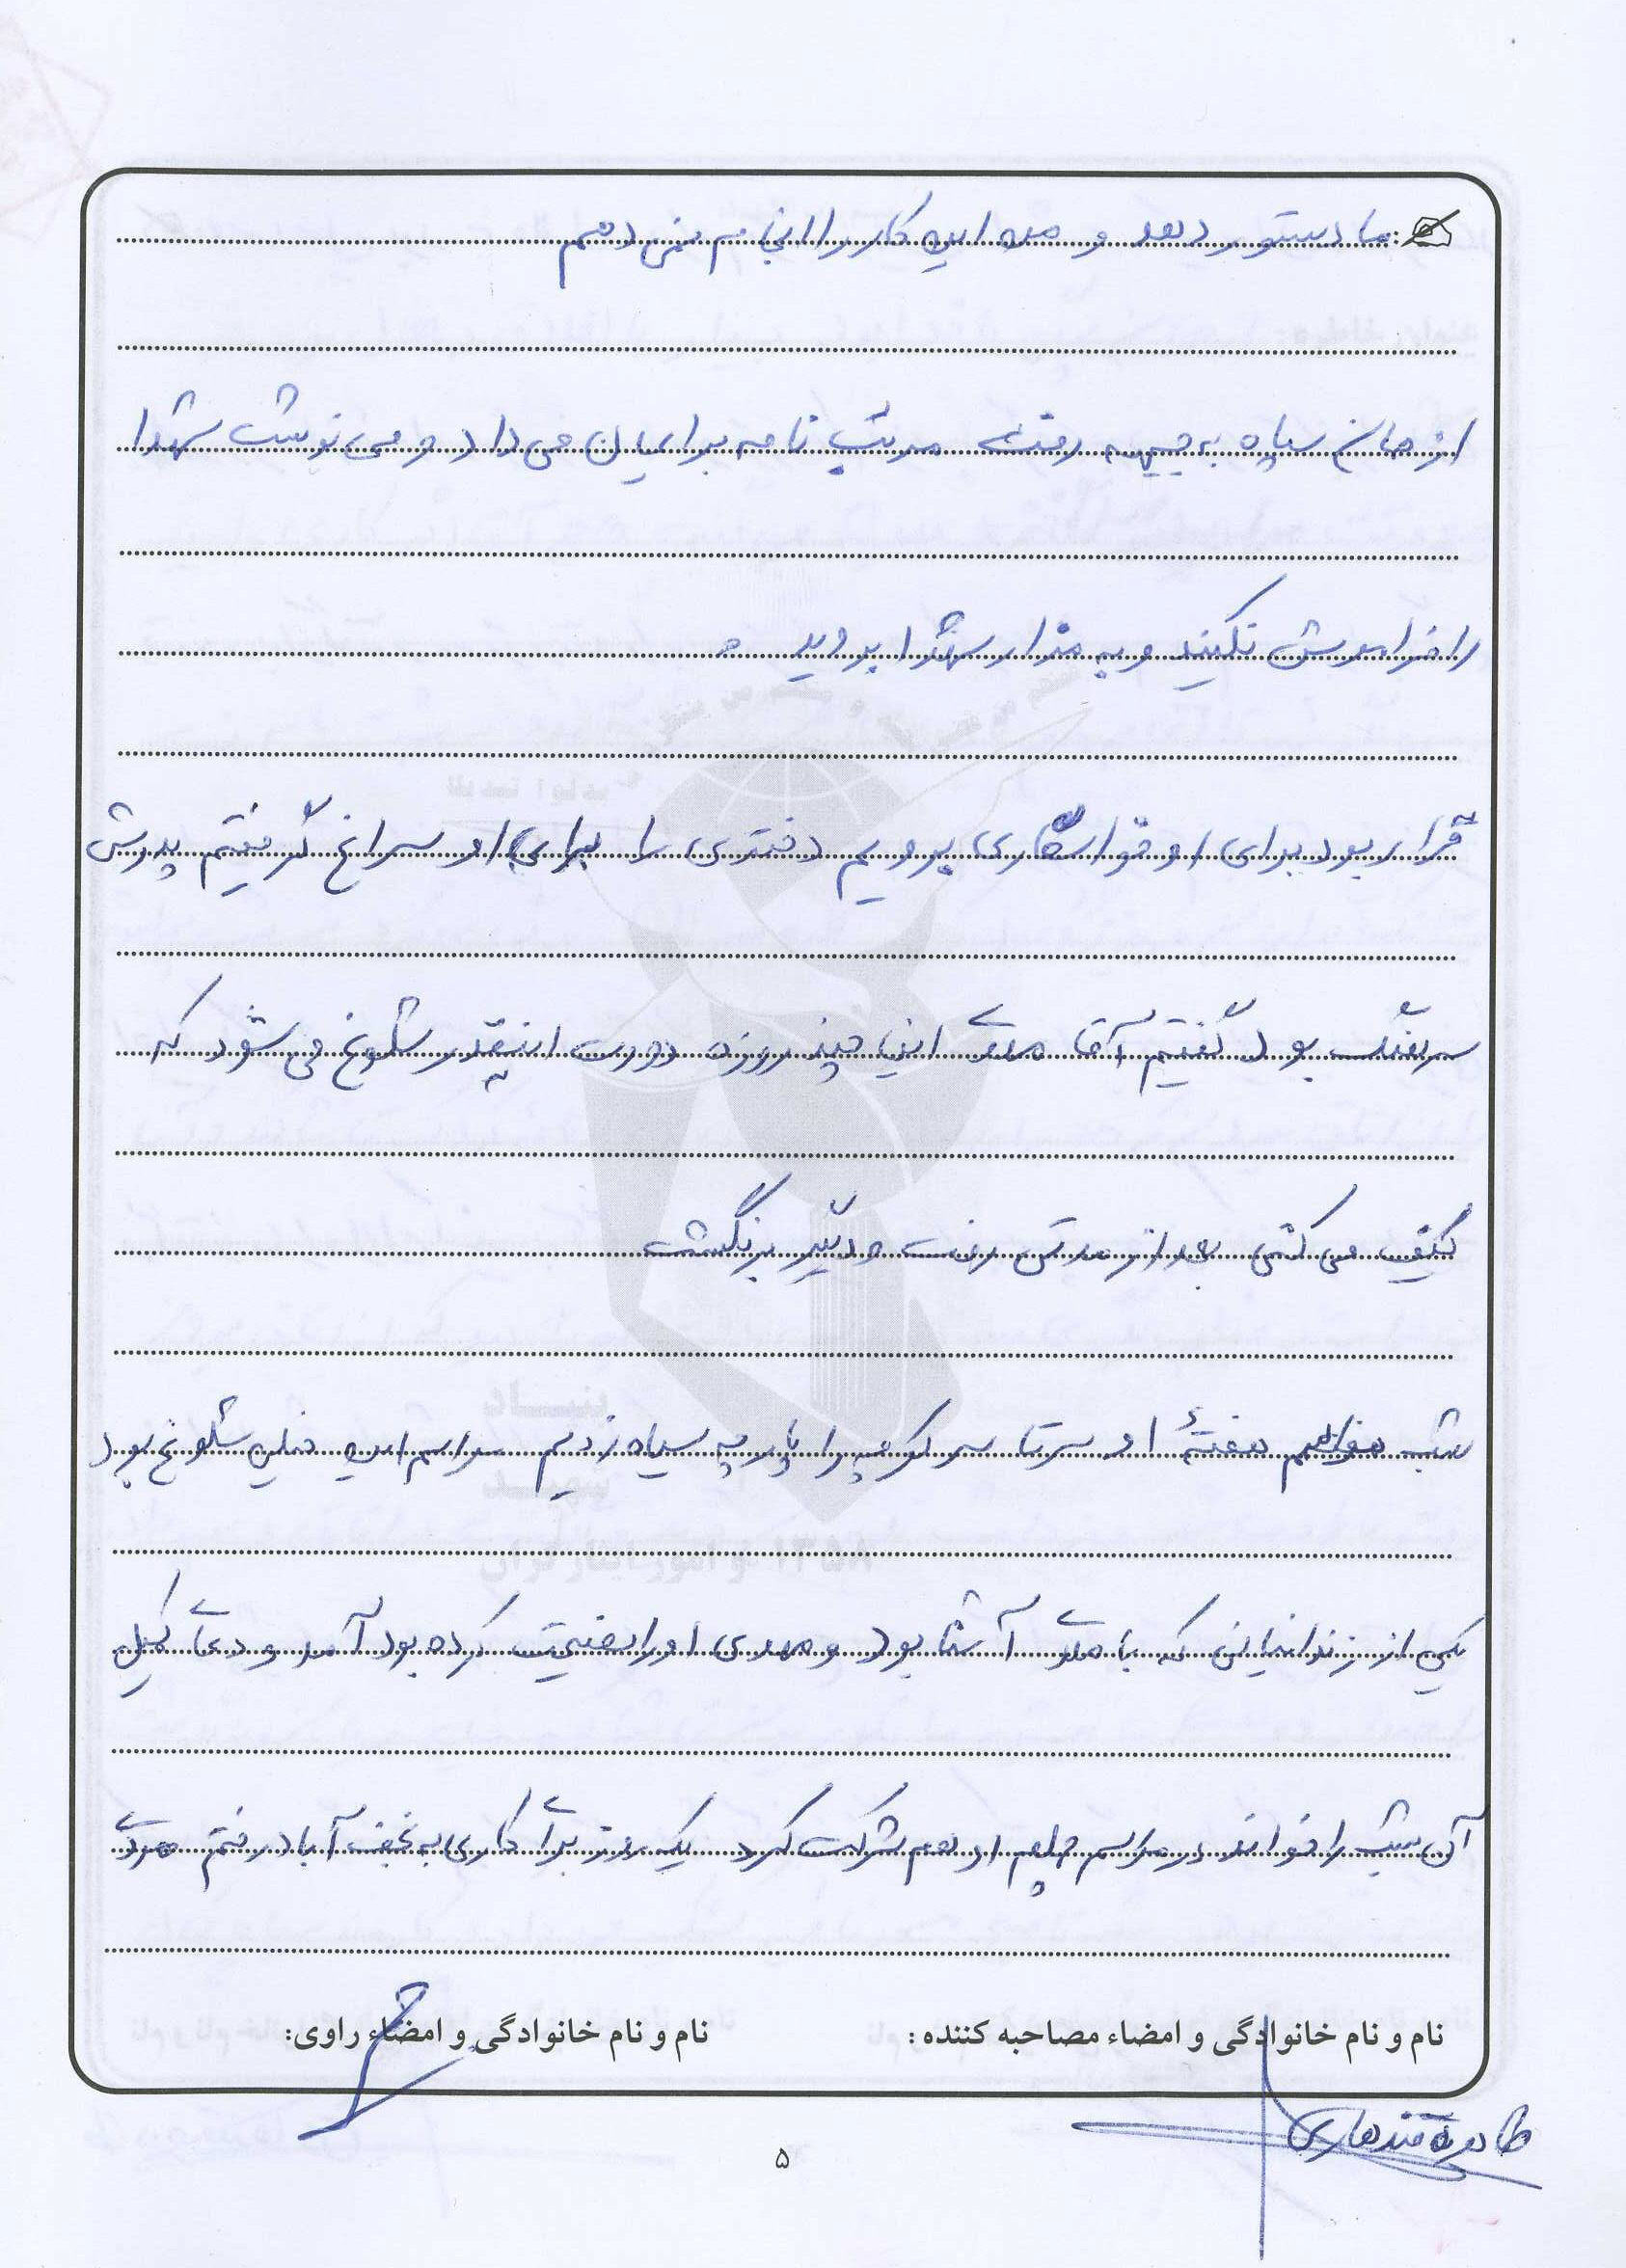 ما دستور دهد و من این کار را انجام نمی دهم
از همان سپاه به جبهه رفت مرتب نامه برایمان می داد و می نوشت شهدا
را فراموش نکنید و به مزار شهدا بروید.
قرار بود برای او خواستگاری برویم دختری را برای او سراغ گرفتیم پدرش
سرهنگ بود گفتیم آقا مهدی این چند روزه دورت اینقدر شلوغ می شود که
کیف می کنی بعد از مدتی رفت و دیگر برنگشت
شب هفتهٔ او سرتاسر کوچه را پارچه سیاه زدیم مراسم او خیلی شلوغ بود
یکی از زندانیانی که با مهدی آشنا بود و مهدی او را نصیحت کرده بود آمد و دعای کمیل
آن شب را خواند در مراسم چهلم او هم شرکت کرد یک روز برای کاری به نجف آباد رفتم مردی
نام و نام خانوادگی و امضاء مصاحبه کننده:
نام و نام خانوادگی و امضاء راوی:
طاهره قندهاری
۵